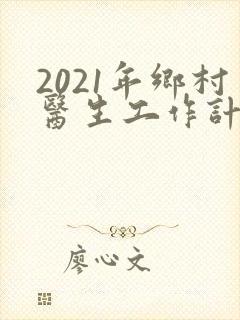 2021年鄉村
醫生工作計
廖心文